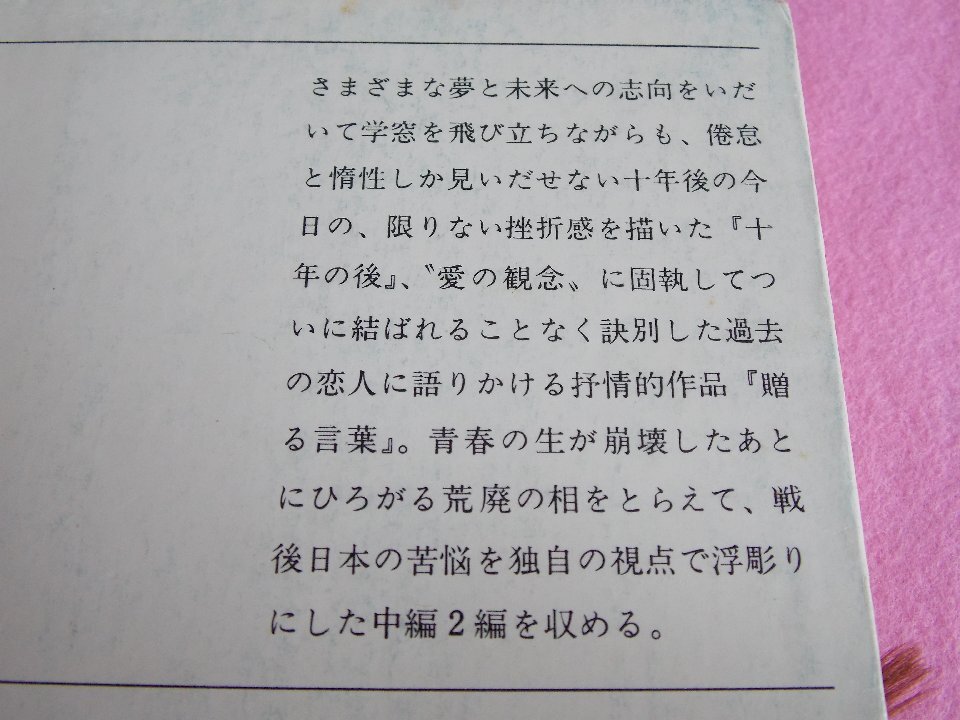 さまざまな夢と未来への志向をいだ
いて学窓を飛び立ちながらも、倦怠
と惰性しか見いだせない十年後の今
日の、限りない挫折感を描いた『十
年の後』、〝愛の観念〟に固執してつ
いに結ばれることなく訣別した過去
の恋人に語りかける抒情的作品『贈
る言葉』。青春の生が崩壊したあと
にひろがる荒廃の相をとらえて、戦
後日本の苦悩を独自の視点で浮彫り
にした中編2編を収める。